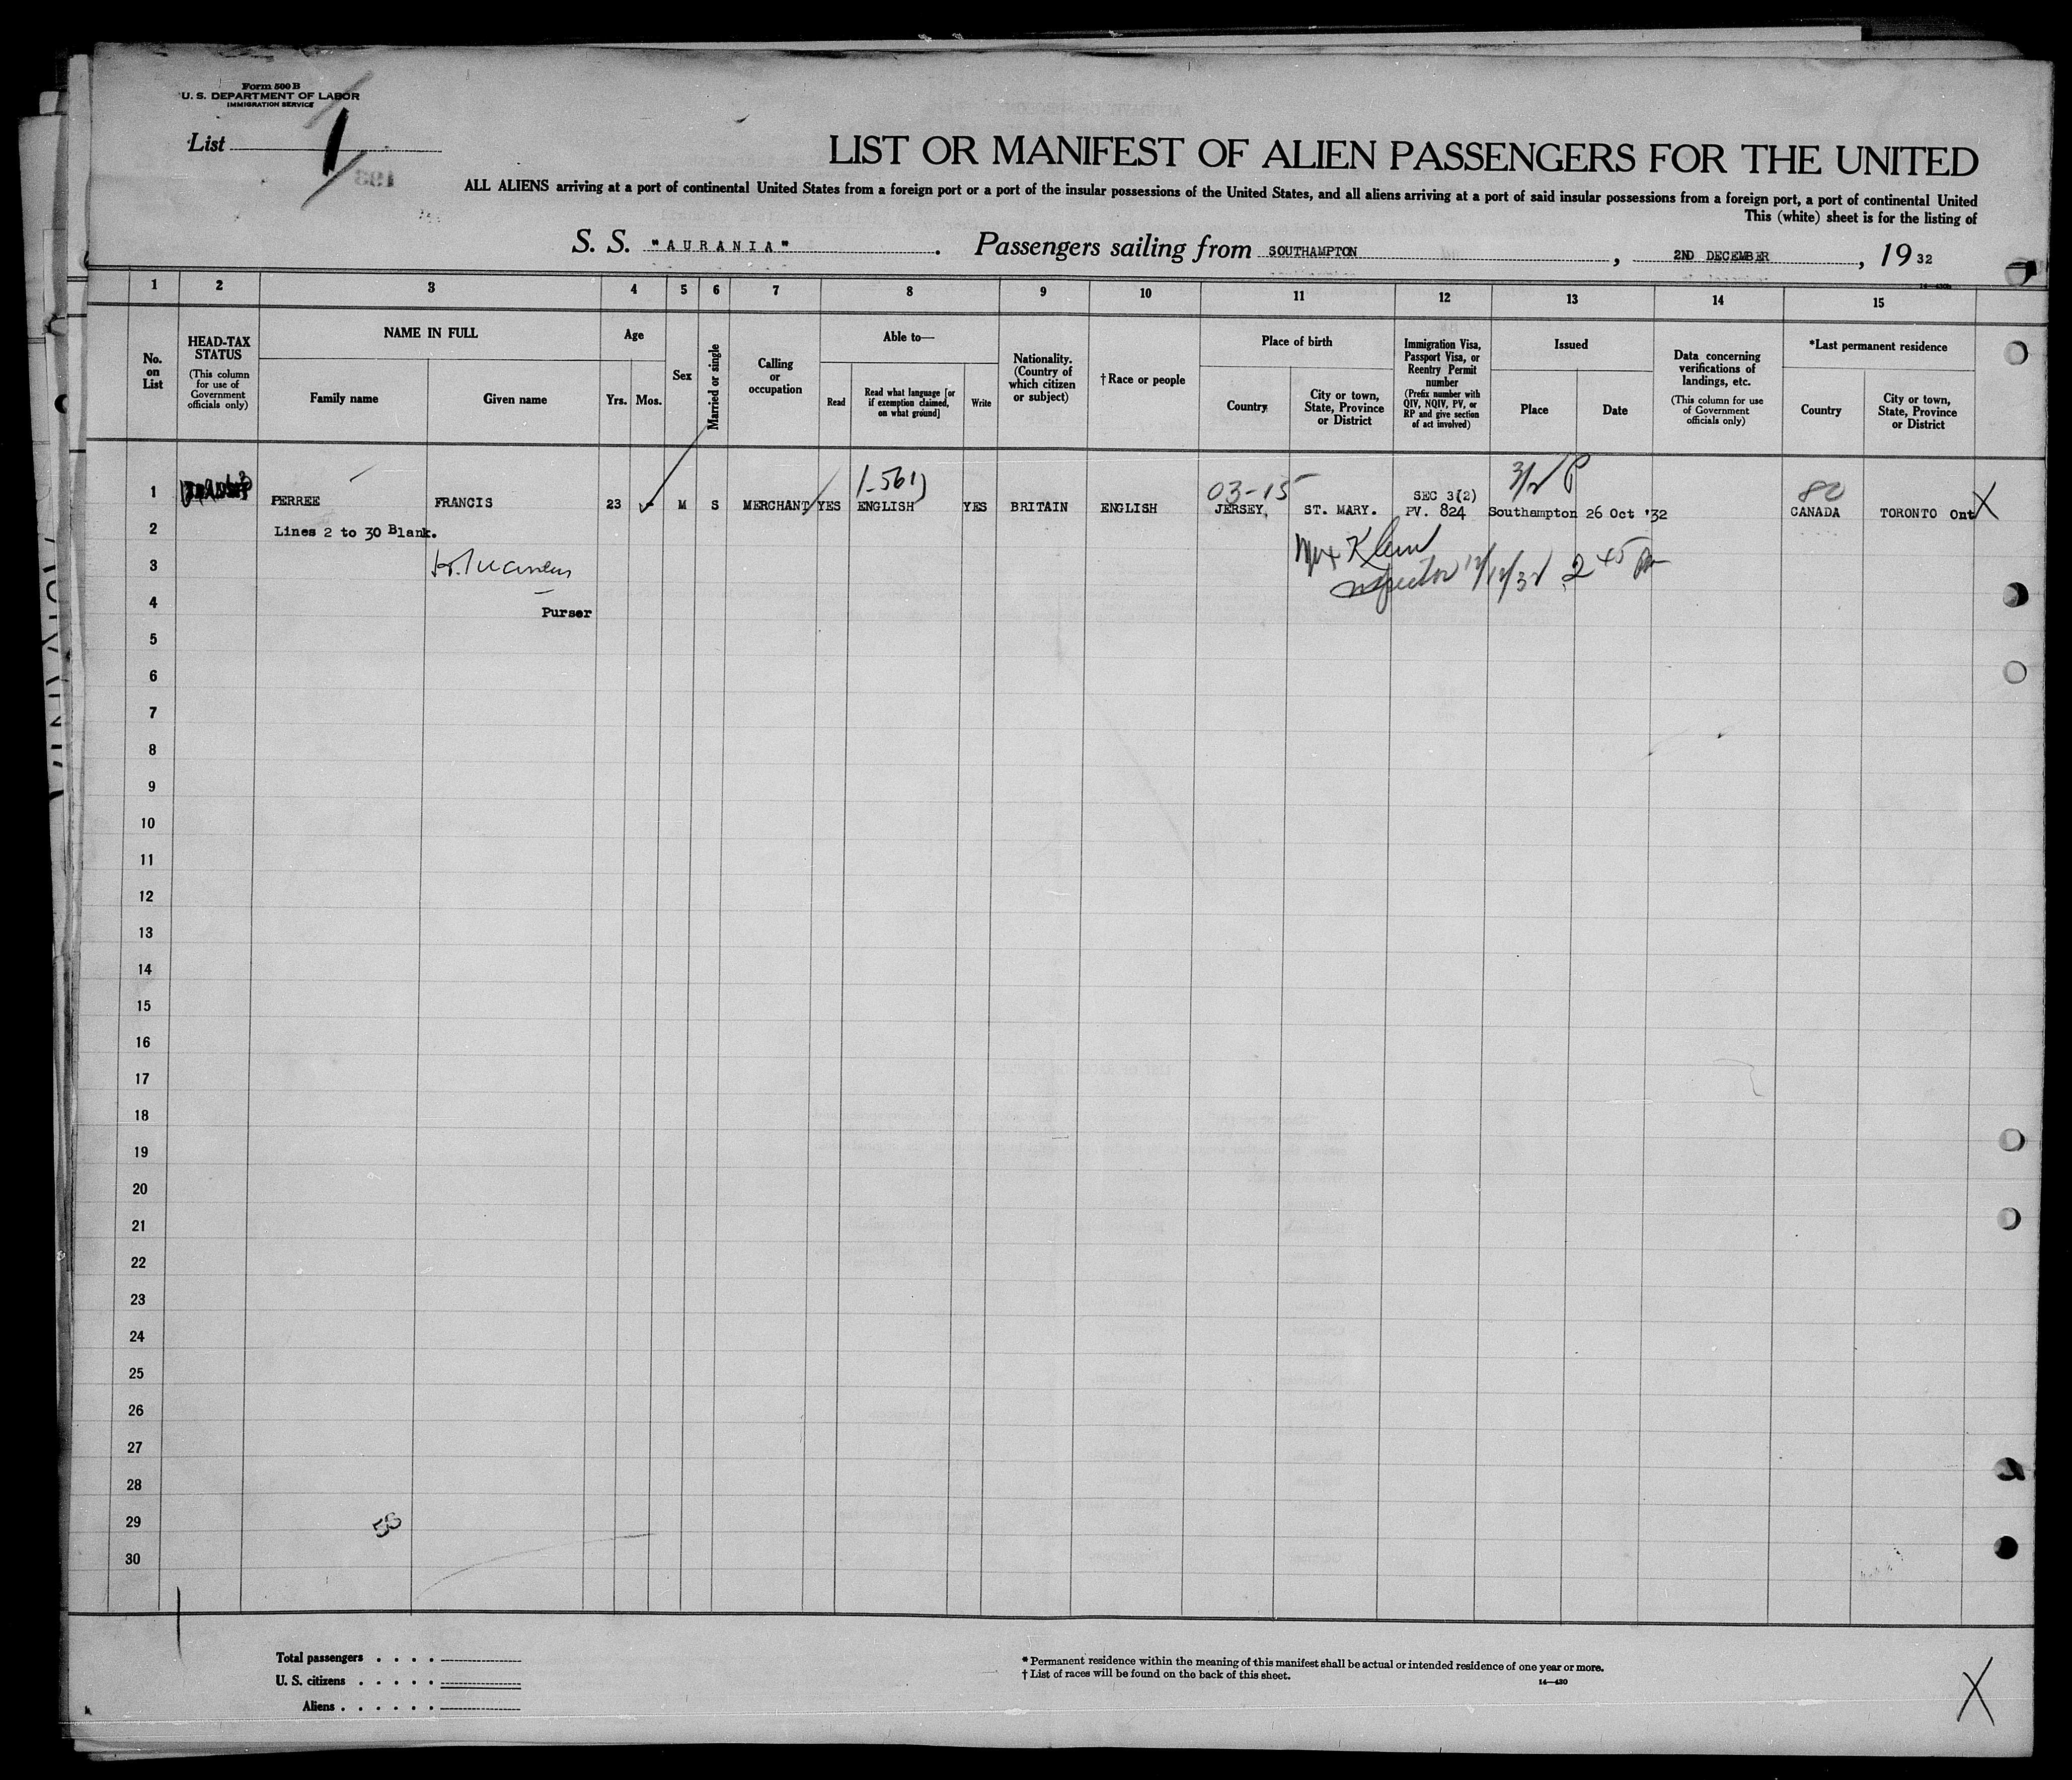 Form 500 B
U. S. DEPARTMENT OF LABOR
IMMIGRATION SERVICE
List 1
LIST OR MANIFEST OF ALIEN PASSENGERS FOR THE UNITED
ALL ALIENS arriving at a port of continental United States from a foreign port or a port of the insular possessions of the United States, and all aliens arriving at a port of said insular possessions from a foreign port, a port of continental United
This (white) sheet is for the listing of
S. S. "AURANIA". Passengers sailing from SOUTHAMPTON, 2ND DECEMBER, 1932
1 2 3 4 5 6 7 8 9 10 11 12 13 14 15
No. on List
HEAD-TAX STATUS
(This column for use of Government officials only)
NAME IN FULL
Family name
Given name
Age
Yrs. Mos.
Sex
Married or single
Calling or occupation
Able to—
Read
Read what language [or if exemption claimed, on what ground]
Write
Nationality. (Country of which citizen or subject)
†Race or people
Place of birth
Country
City or town, State, Province or District
Immigration Visa, Passport Visa, or Reentry Permit number
(Prefix number with QIV, NQIV, PV, or RP and give section of act involved)
Issued
Place
Date
Data concerning verifications of landings, etc.
(This column for use of Government officials only)
*Last permanent residence
Country
City or town, State, Province or District
03-15
80
SEC 3(2)
1 PERREE FRANCIS 23 M S MERCHANT YES ENGLISH YES BRITAIN ENGLISH JERSEY, ST. MARY. PV. 824 Southampton 26 Oct '32 CANADA TORONTO Ont X
2 Lines 2 to 30 Blank.
Klein
3
Inspector 12/12/32 2 45 Pm
4 Purser
5
6
7
8
9
10
11
12
13
14
15
16
17
18
19
20
21
22
23
24
25
26
27
28
29
30
Total passengers . . . .
U. S. citizens . . . . .
Aliens . . . . . .
* Permanent residence within the meaning of this manifest shall be actual or intended residence of one year or more.
† List of races will be found on the back of this sheet.
14—430
X